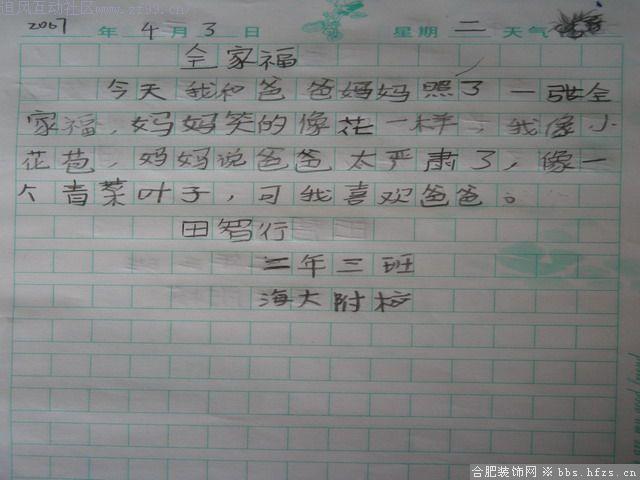 追风互动社区
www.zf99.cn
2007 年 4 月 3 日 星期 二 天气
全家福
今天我和爸爸妈妈照了一张全
家福，妈妈笑的像花一样，我像小
花苞，妈妈说爸爸太严肃了，像一
个青菜叶子，可我喜欢爸爸。
田智行
二年三班
海大附校
合肥装饰网※bbs.hfzs.cn